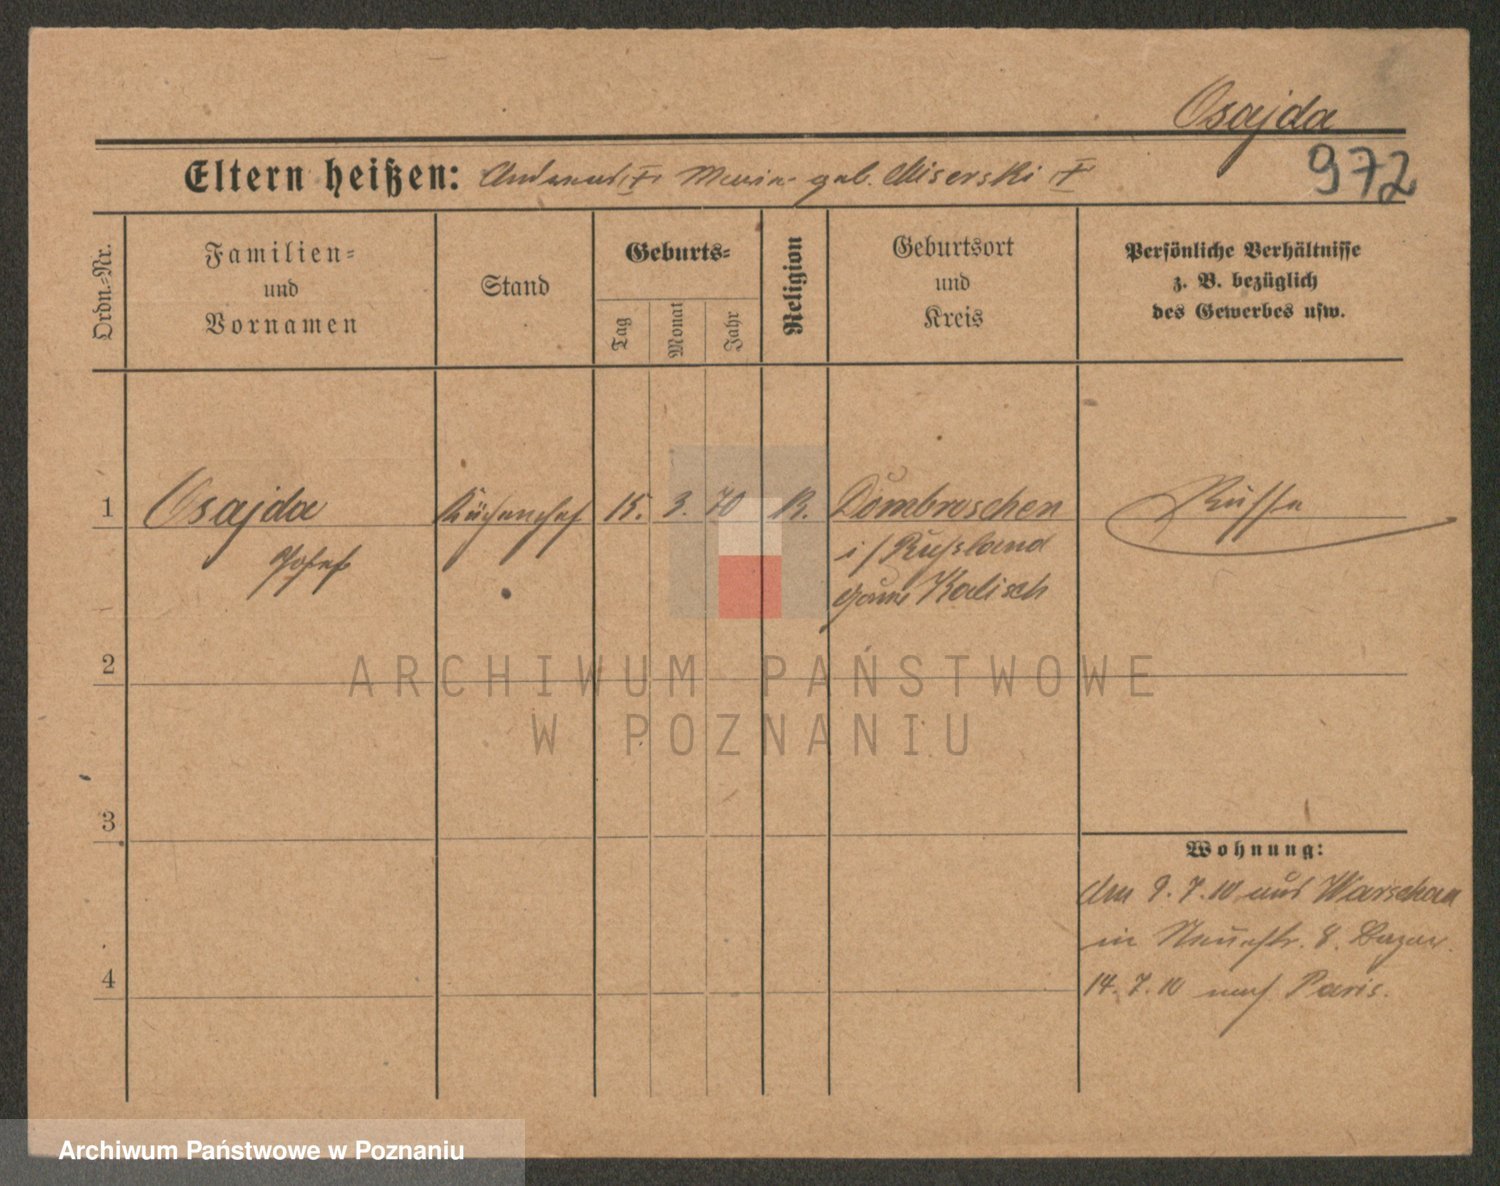 Osajda
972
Eltern heißen: Maria geb. Miserski †
Ordn.-Nr.
Familien-
und
Vornamen
Stand
Geburts-
Tag
Monat
Jahr
Religion
Geburtsort
und
Kreis
Persönliche Verhältnisse
z. B. bezüglich
des Gewerbes usw.
1
Osajda
Josef
Küchenchef
15.
3.
70
K.
Dombroschen
i/Russland
Kalisch
Russe
2
3
4
Wohnung:
Am 9.7.10 aus Warschau
in Neuestr. 8. Bazar.
14.7.10 nach Paris.
ARCHIWUM PAŃSTWOWE
W POZNANIU
Archiwum Państwowe w Poznaniu